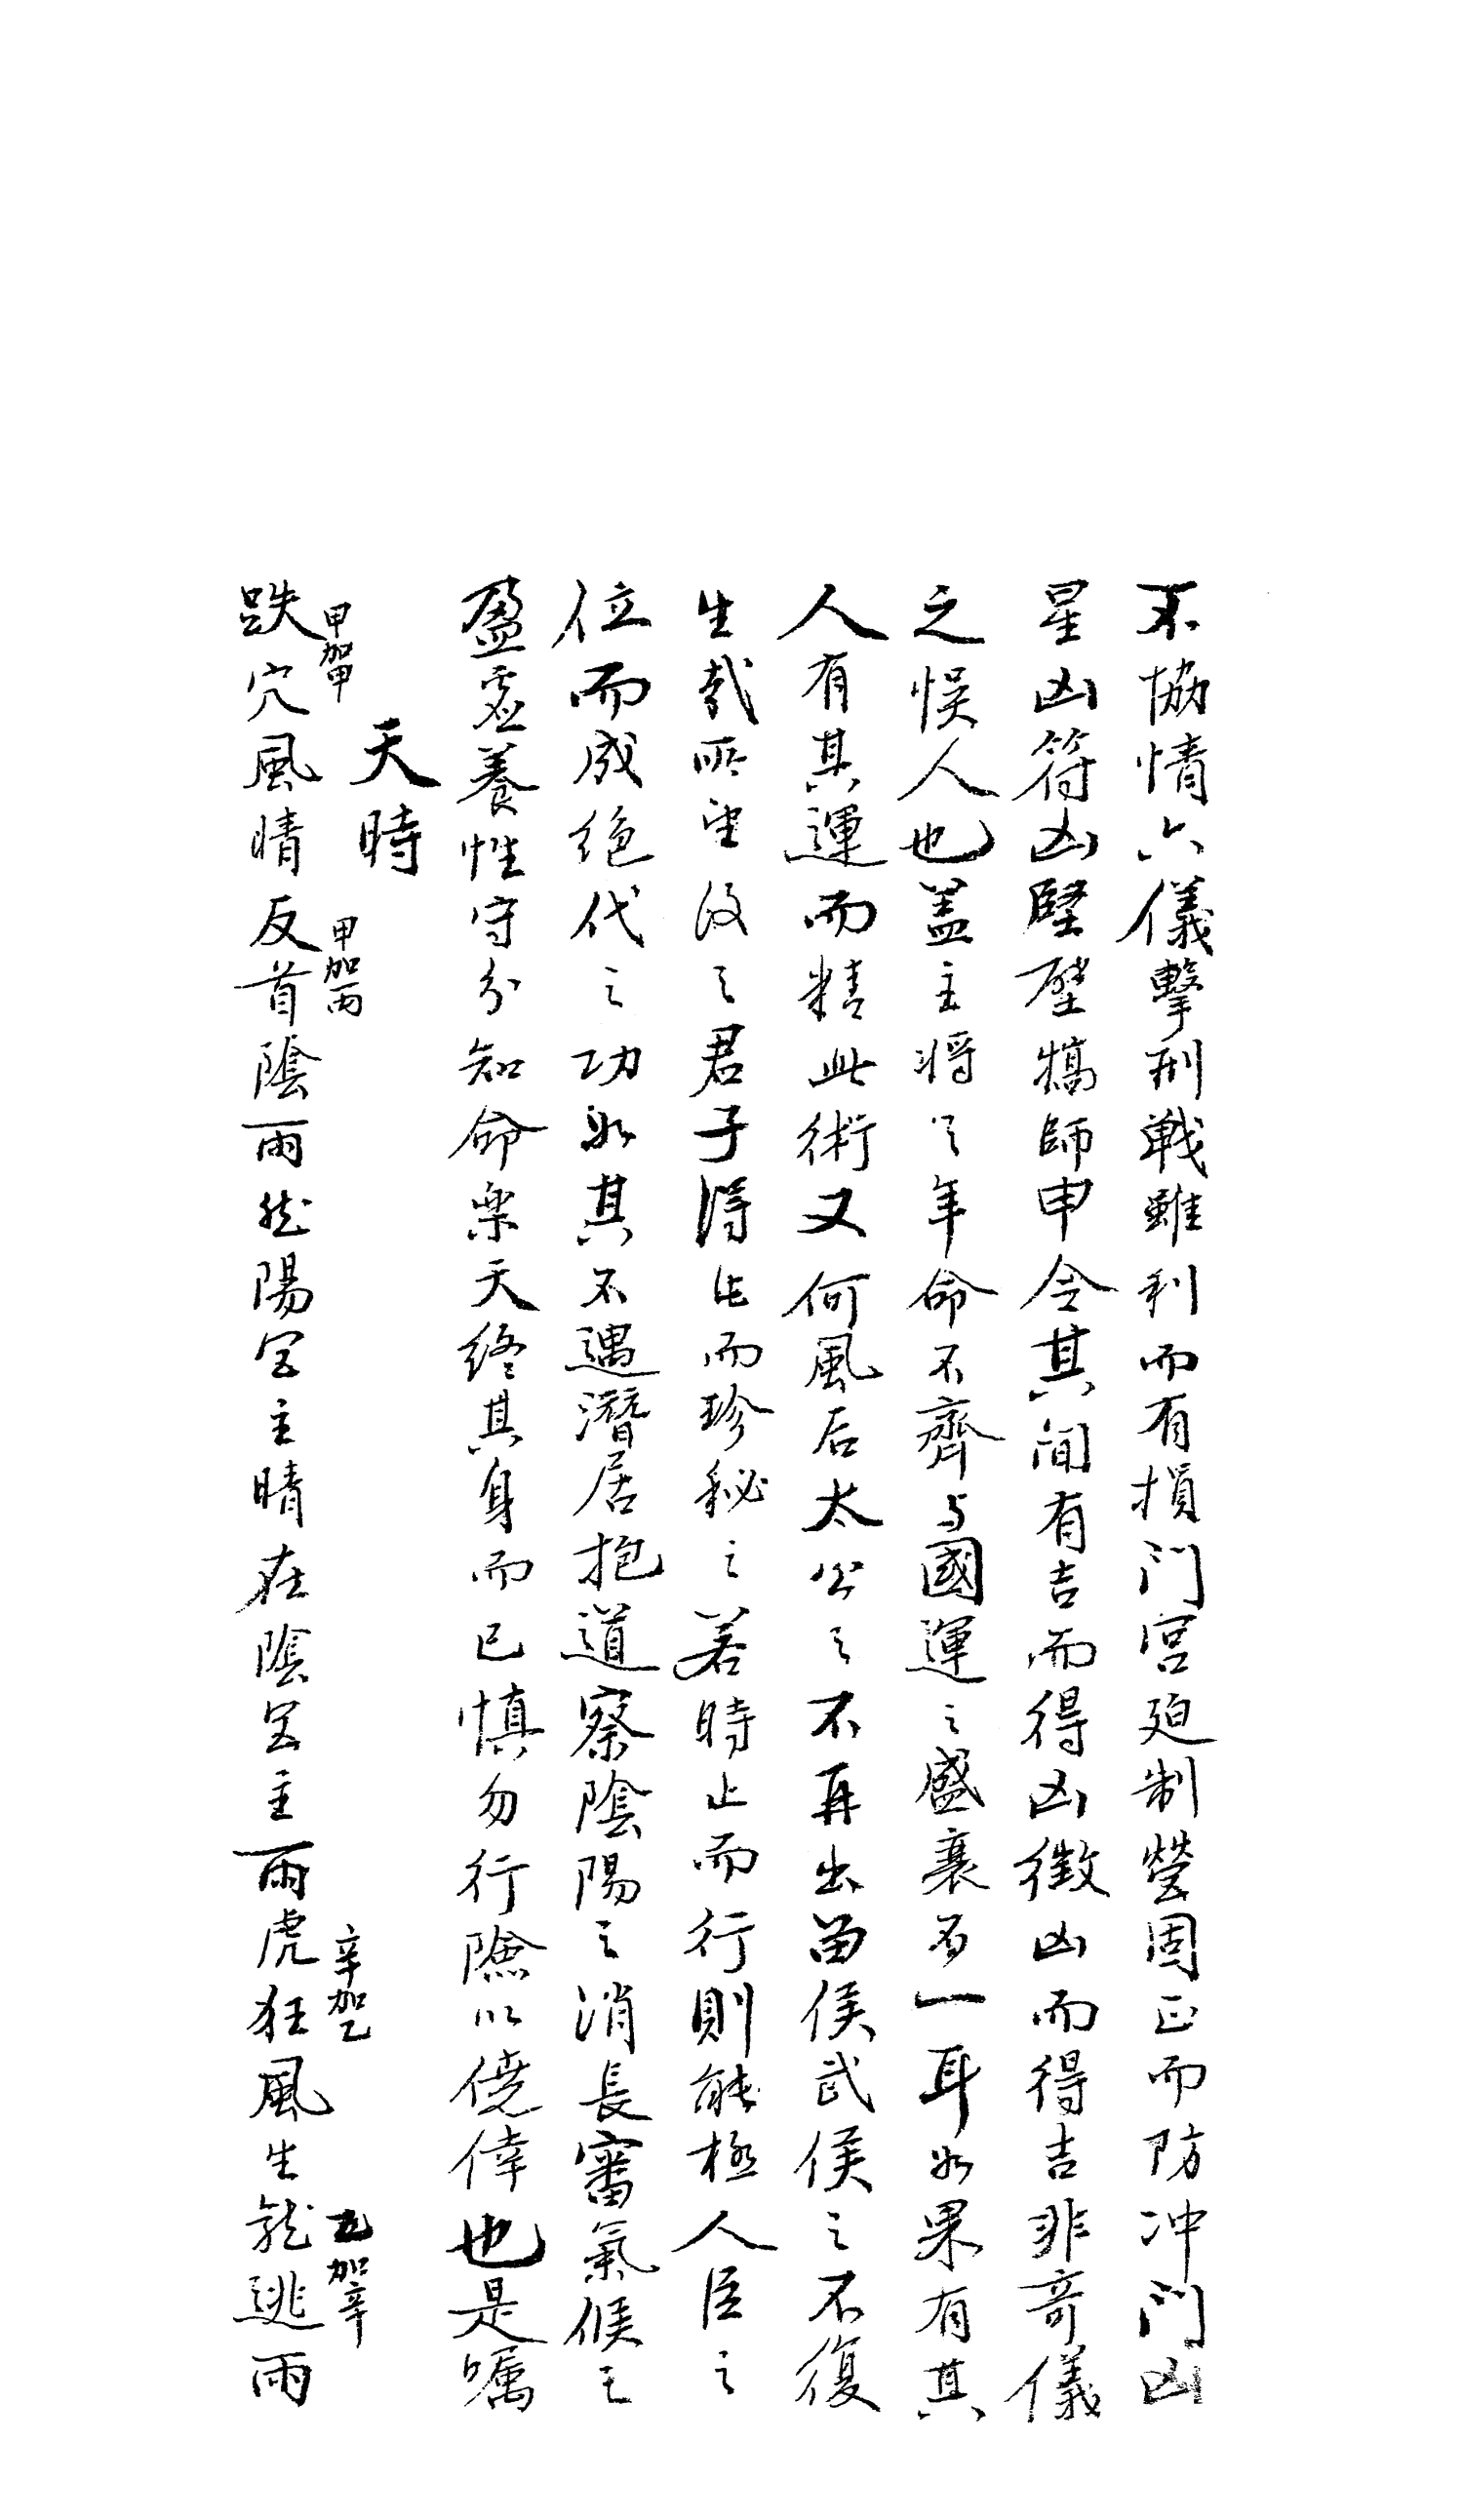 不協情六儀擊刑戦雖利而有損门宫廹制營固正而防冲門凶
星凶符凶堅壁犒師申令其間有吉而得凶徵凶而得吉非竒儀
之悞人也盖主將之年命不齊与國運之盛衰不一耳如果有其
人有其運而精此術又何風后太公之不再出畄侯武侯之不復
生哉所望後之君子得此而珍秘之若時止而行則能極人臣之
位而成绝代之功如其不遇潛居抱道察陰陽之消長審氣候之
盈虚養性守分知命楽天终其身而已慎勿行險以僥倖也是嘱
天時
甲加甲 甲加丙 辛加乙 乙加辛
跌穴風晴反首陰雨然陽宫主晴在陰宫主雨虎狂風生龍逃雨